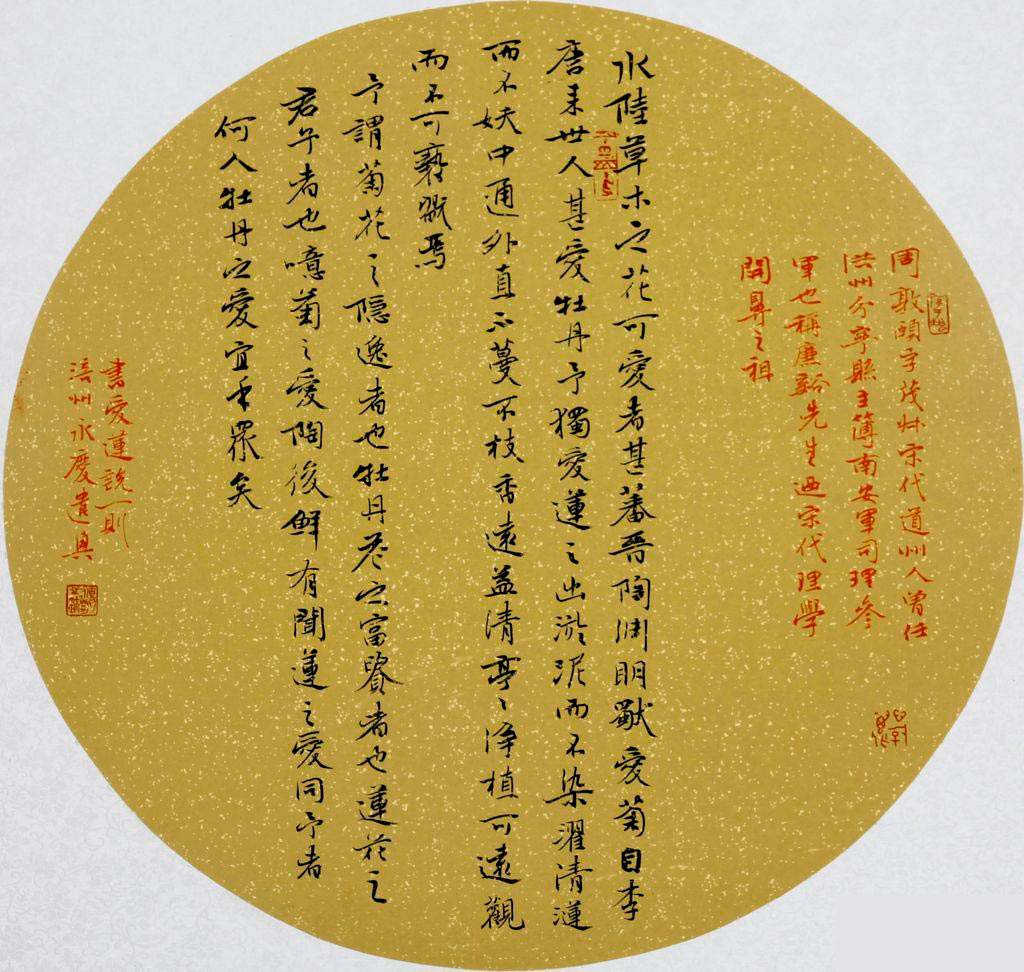 周敦頤字茂叔宋代道州人曾任
洪州分寧縣主簿南安軍司理參
軍也稱廉谿先生迺宋代理學
開鼻之祖
水陸草木之花可愛者甚蕃晉陶淵明獨愛菊自李
唐来世人甚愛牡丹予獨愛蓮之出淤泥而不染濯清漣
而不妖中通外直不蔓不枝香遠益清亭〻淨植可遠觀
而不可褻翫焉
予謂菊花之隱逸者也牡丹花之富貴者也蓮花之
君子者也噫菊之愛陶後鮮有聞蓮之愛同予者
何人牡丹之愛宜乎眾矣
書愛蓮說一則
涪州永慶遣興